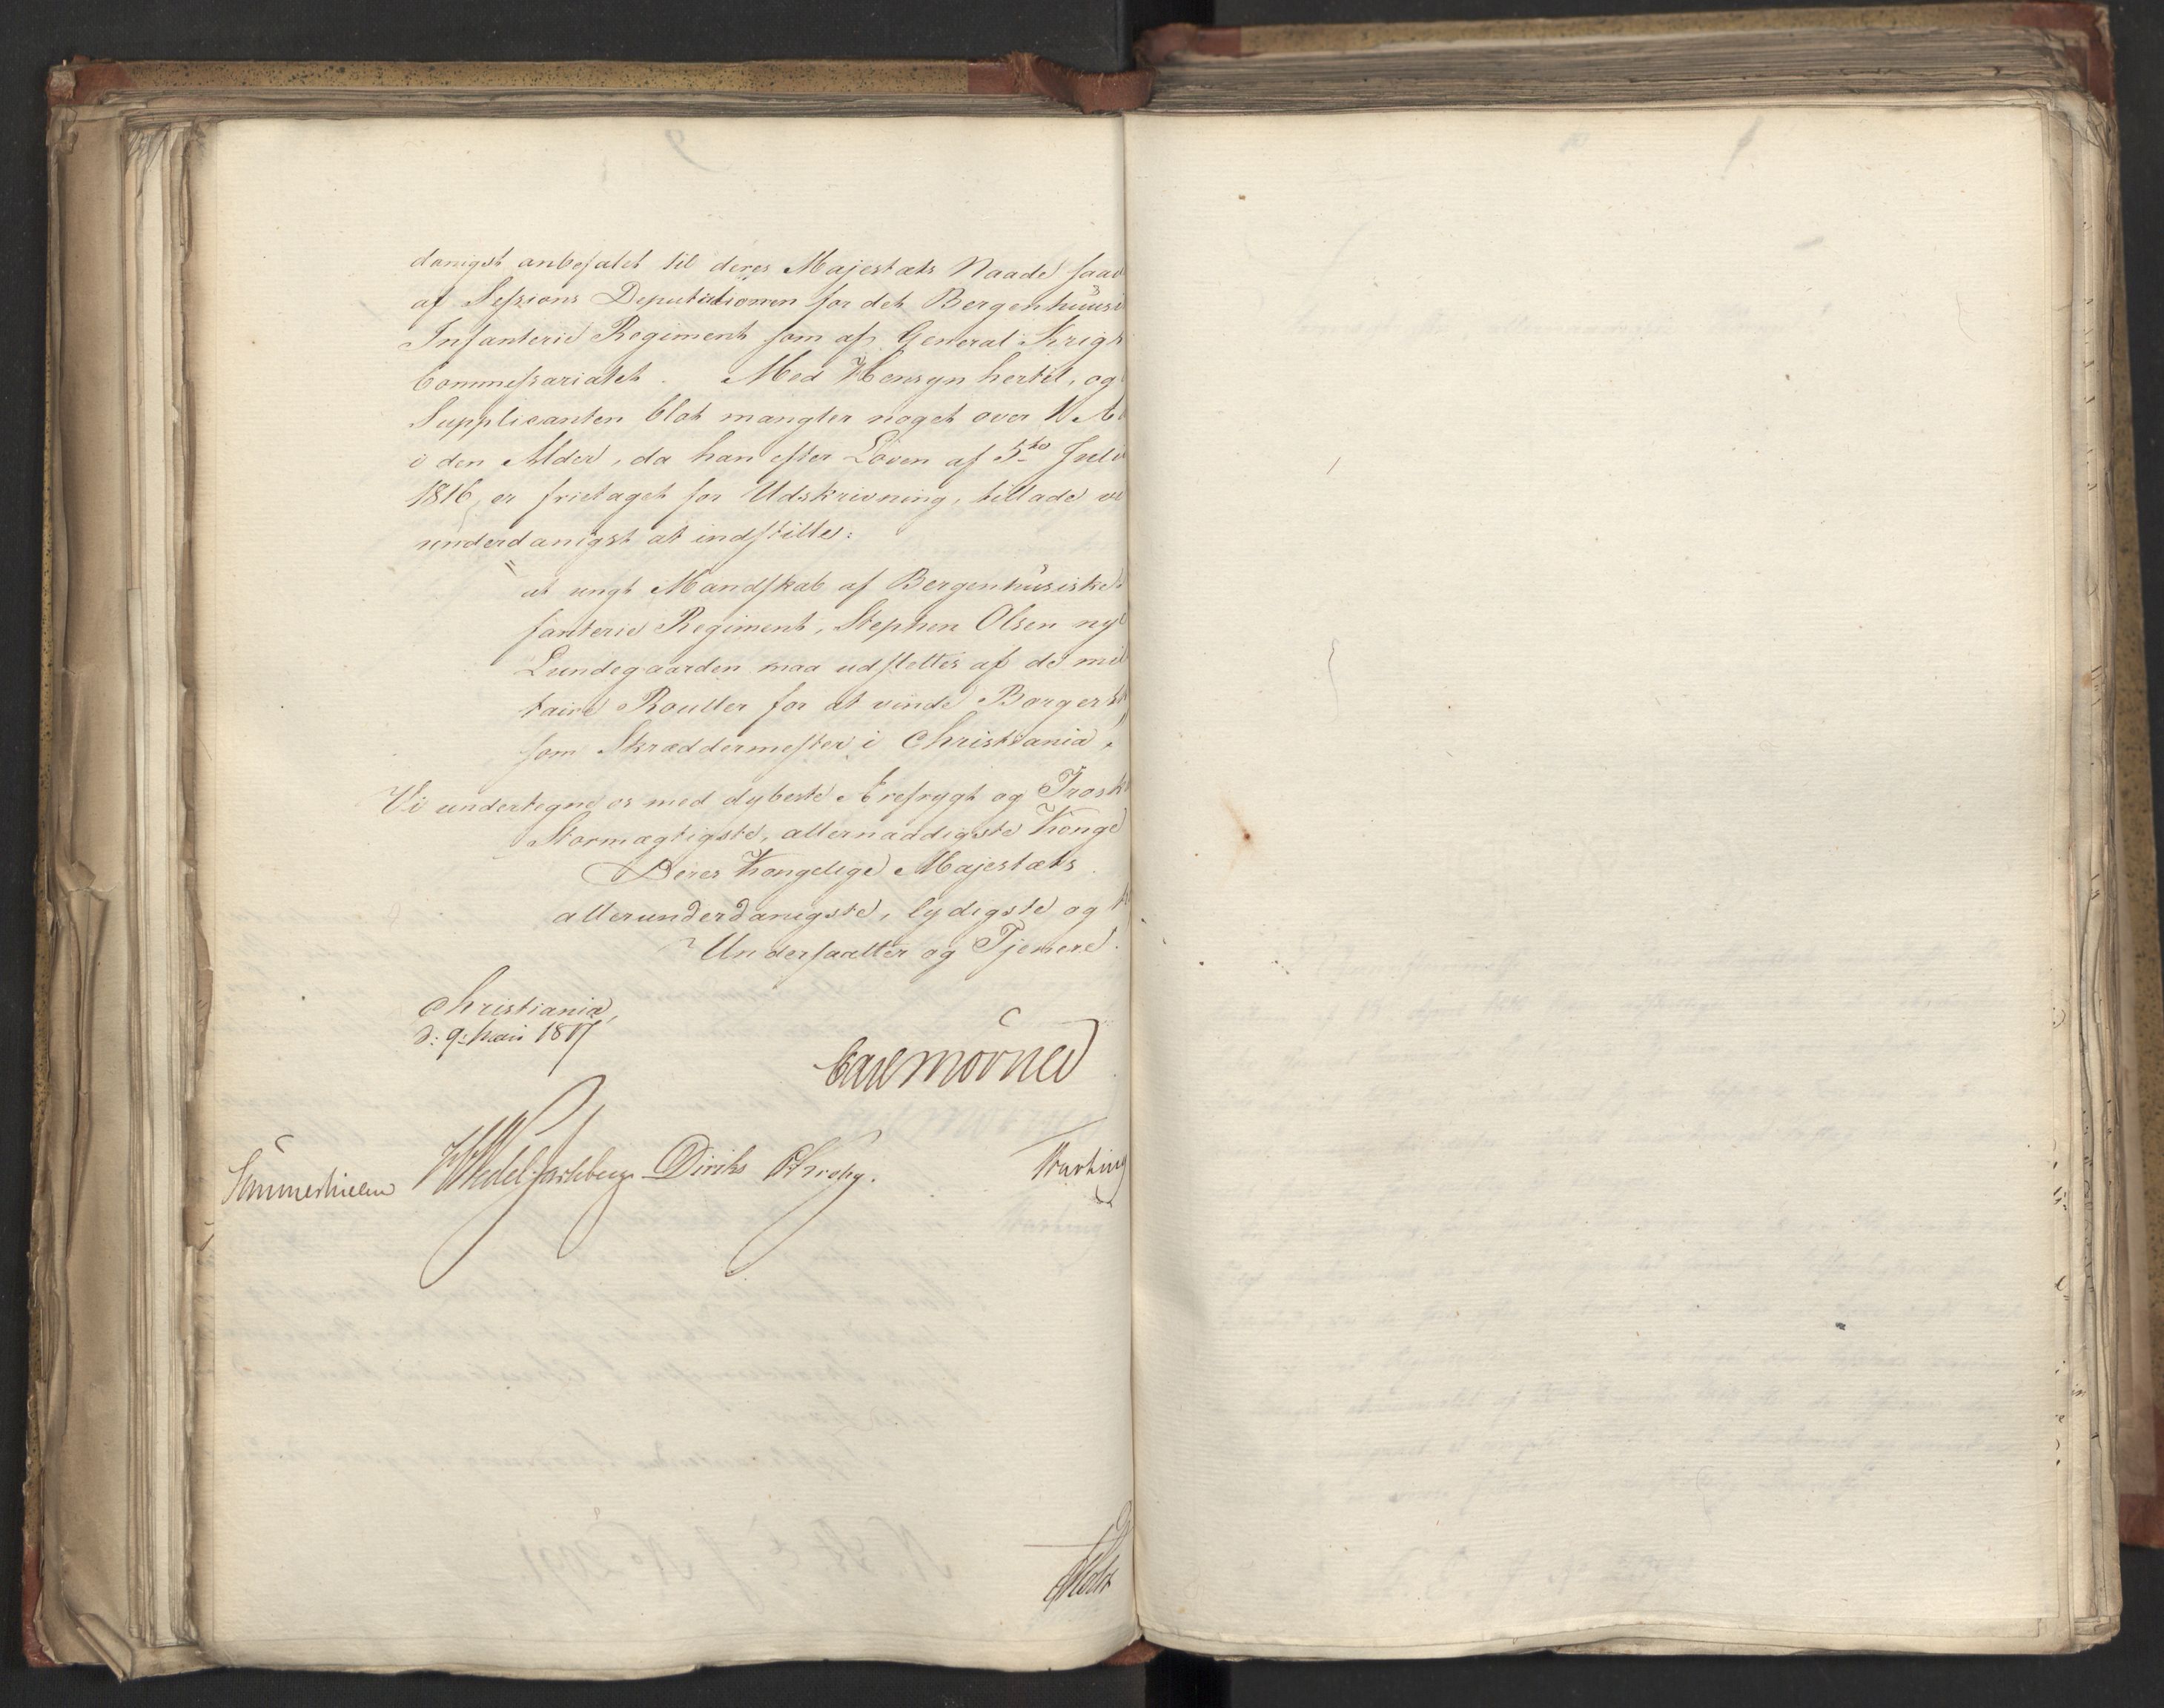 danigst anbefalet til deres Majestæts Naade saav
af Sessions Deputationen for det Bergenhuusi
Infanterie Regiment som af General Krigs
Commissariatet. Med Hensyn hertil, og
Supplicanten blot mangler noget over 1 A
i den Alder, da han efter Loven af 5te Juli
1816 er frietaget for Udskrivning, tillade vi
underdanigst at indstille:
at ungt Mandskab af Bergenhusiske
fanterie Regiment, Stephen Olsen
Lundegaarden maa udslettes af de mil
taire Rouller for at vinde Borgersk
som Skræddermester i Christiania.
Vi undertegne os med dybeste Ærefrygt og Trosk
Stormægtigste, allernaadigste Konge
Deres Kongelige Majestæts
allerunderdanigste, lydigste og t
Undersaatter og Tjenere.
Christiania,
d: 9 Mai 1817
Carl Mörner
Sommerhielm Wedel Jarlsberg Diriks Krohg.
Holst